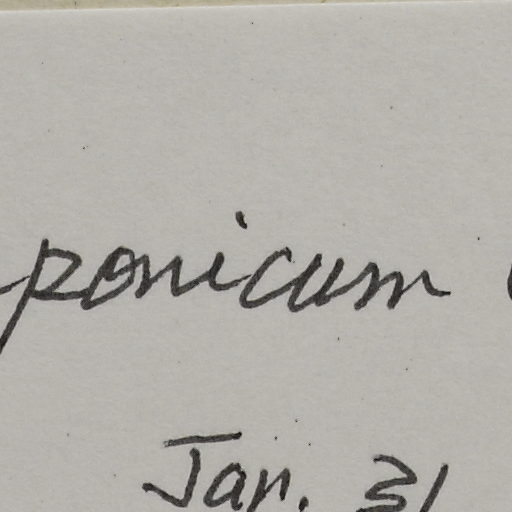 ponicum
Jan. 31